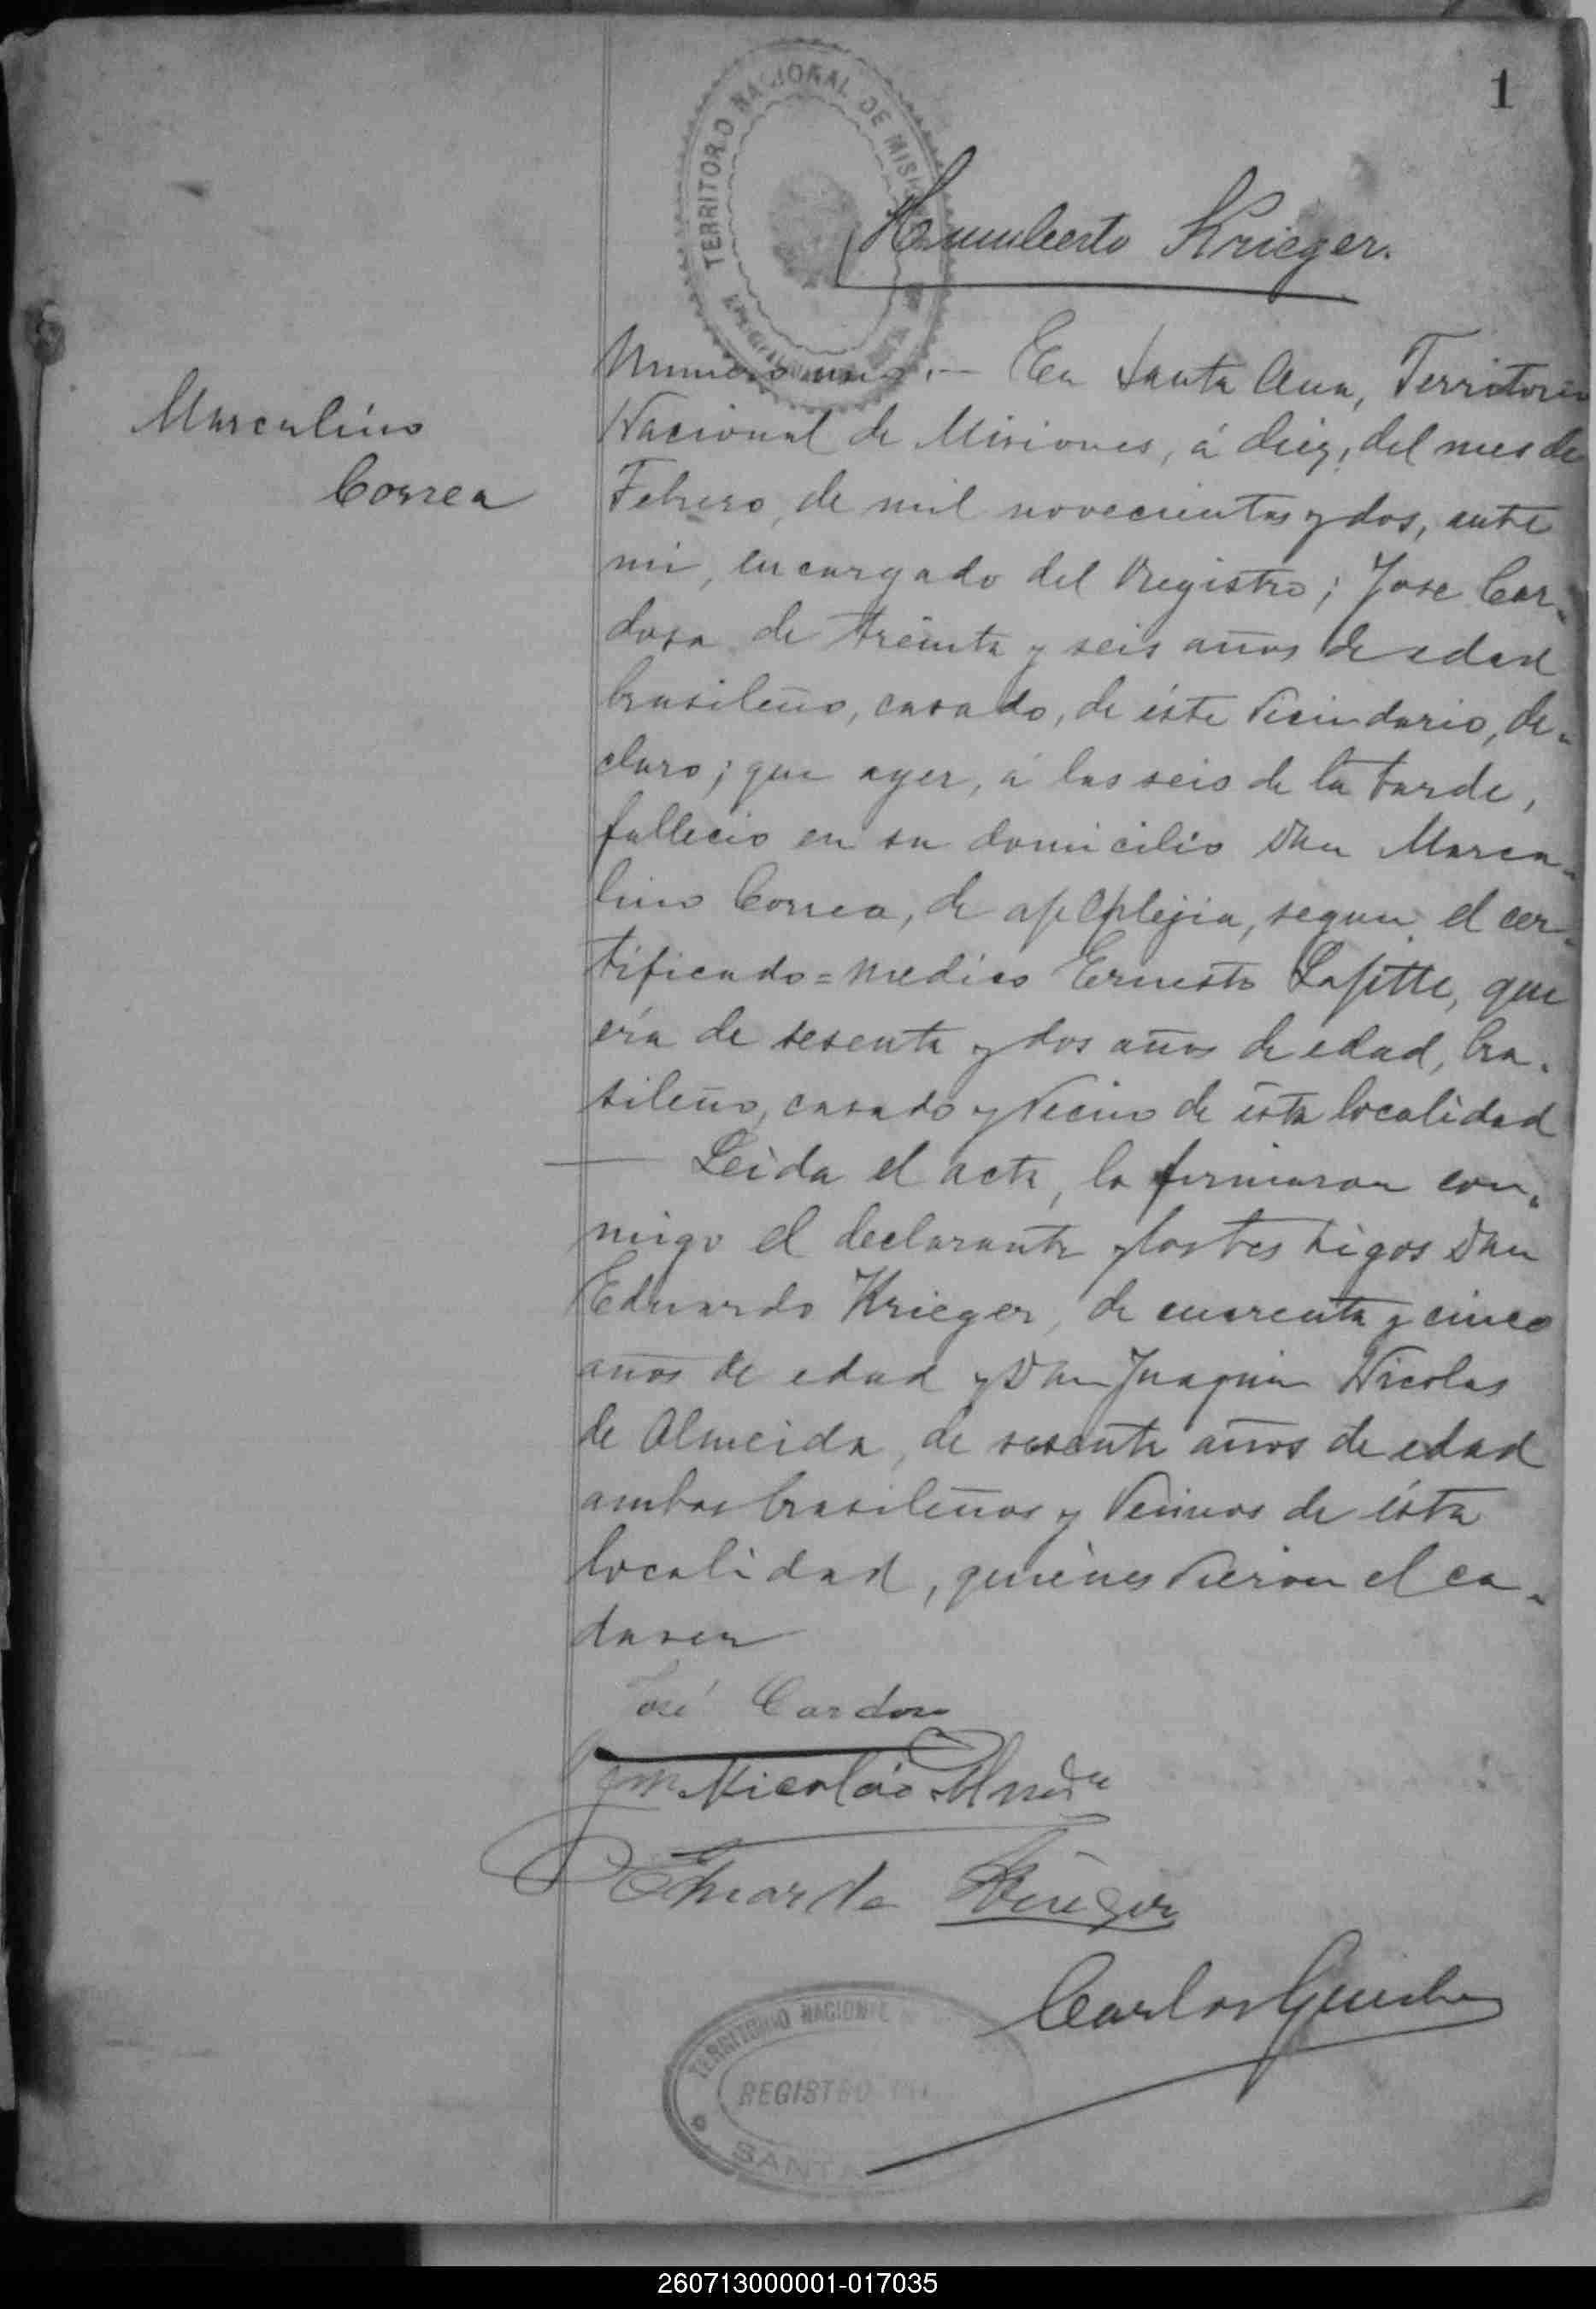 1
TERRITORIO NACIONAL DE MISIONES
Humberto Krieger.
Numero uno.— En Santa Ana, Territorio
Masculino
Correa
Nacional de Misiones, á diez, del mes de
Febrero, de mil novecientos y dos, ante
mi, encargado del Registro; Jose Car-
doso de treinta y seis años de edad
brasileño, casado, de éste vecindario, de-
claro; que ayer, á las seis de la tarde,
fallecio en su domicilio Don Marcu-
lino Correa, de apoplejia, segun el cer-
tificado=medico Ernesto Lafitte, que
era de sesenta y dos años de edad, bra-
sileño, casado y vecino de ésta localidad
— Leida el acta, la firmaron con-
migo el declarante y los testigos Don
Eduardo Krieger, de cuarenta y cinco
años de edad y Don Juaquin Nicolas
de Almeida, de sesenta años de edad
ambos brasileños y vecinos de ésta
localidad, quiénes vieron el ca-
daver
José Cardoso
Nicoláo Almeida
Eduardo Krieger
Carlos
TERRITORIO NACIONAL
REGISTRO
SANTA
260713000001-017035